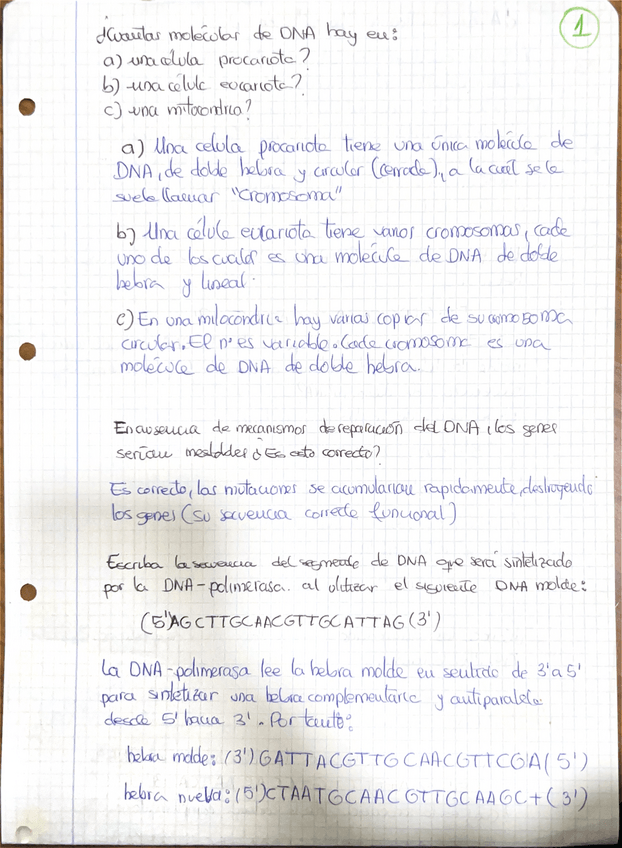 1
¿Cuantas molécular de DNA hay en:
a) una célula procariota?
b) una célula eucariota?
c) una mitocondria?
a) Una celula procariota tiene una única molécula de
DNA, de doble hebra y circular (cerrada), a la cual se le
suele llamar "Cromosoma"
b) Una célula eucariota tiene varios cromosomas, cada
uno de los cuales es una molécula de DNA de doble
hebra y lineal.
c) En una mitocóndria hay varias copias de su cromosoma
circular. El nº es variable. Cada cromosoma es una
molécula de DNA de doble hebra.
En ausencia de mecanismos de reparación del DNA, los genes
serían inestables ¿Es esto correcto?
Es correcto, las mutaciones se acumularían rapidamente, destruyendo
los genes (su secuencia correcta funcional)
Escriba la secuencia del segmento de DNA que será sintetizado
por la DNA-polimerasa. al utilizar el siguiente DNA molde:
(5')AGCTTGCAACGTTGCATTAG(3')
La DNA-polimerasa lee la hebra molde en sentido de 3' a 5'
para sintetizar una hebra complementaria y antiparalela
desde 5' hacia 3'. Por tanto:
hebra molde: (3')GATTACGTTGCAACGTTCGA(5')
hebra nueva: (5')CTAATGCAACGTTGCAAGCT(3')